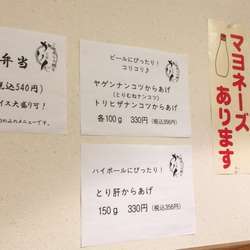 弁当
税込540円)
イス大盛り可!
ビールにぴったり!
コリコリ♪
ヤゲンナンコツからあげ
(とりむねナンコツ)
トリヒザナンコツからあげ
各100g 330円(税込356円)
ハイボールにぴったり!
とり肝からあげ
150g 330円(税込356円)
マヨネーズ
あります